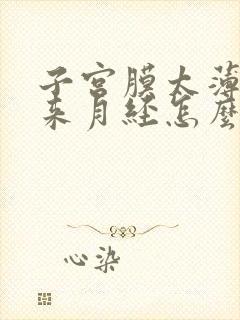 子宫膜太薄
来月经怎麼
心染